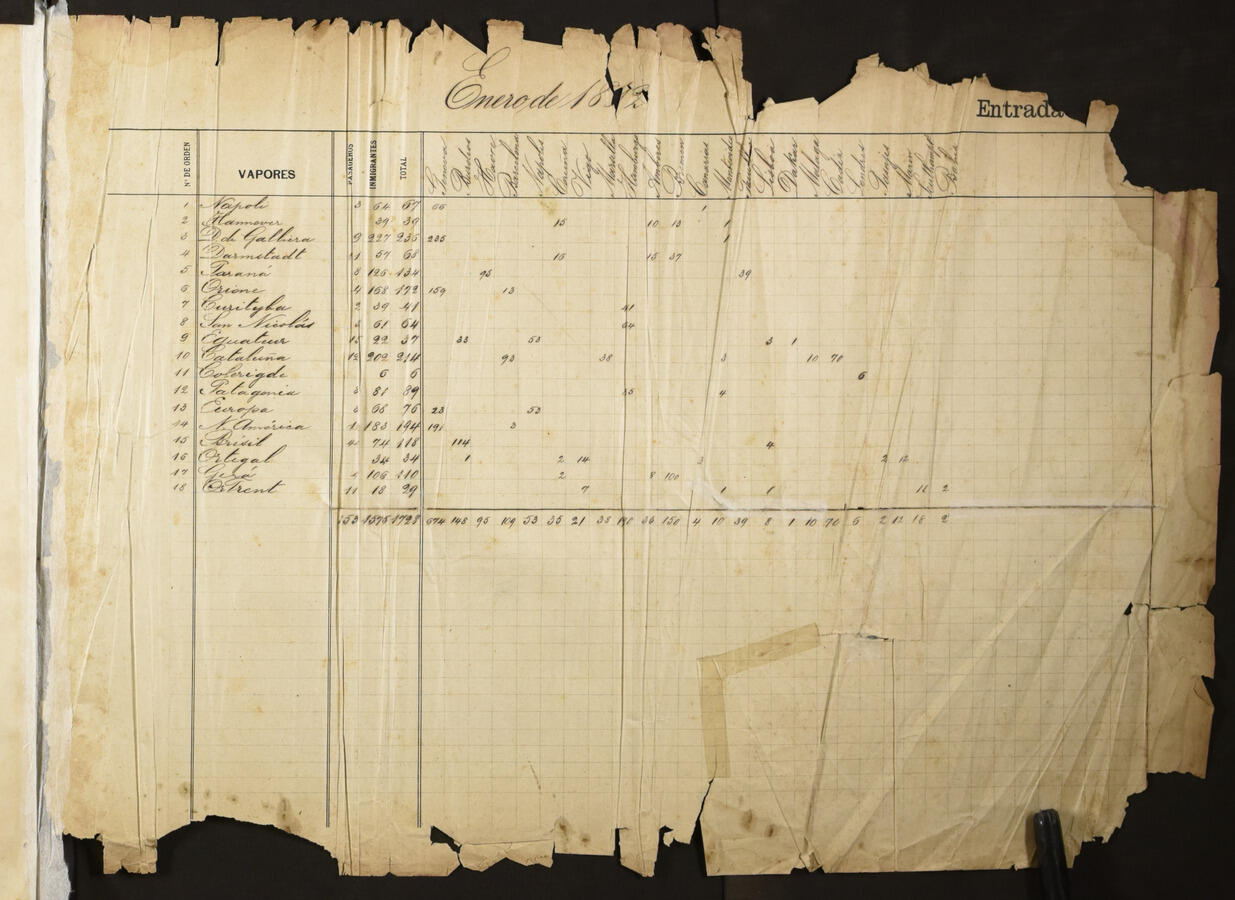 Enero de 1892
Entrada
Nº DE ORDEN VAPORES PASAGEROS INMIGRANTES TOTAL Genova Burdeos Havre Barcelona Napoles Coruña Vigo Marsella Hamburgo Amberes Bremen Canarias Montevideo Lisboa Dakar Malaga Cadiz Londres Marin Bahia
1 Napoli 3 64 67 66 1
2 Hannover 39 39 15 10 13 1
3 D. di Galliera 9 227 236 235 1
4 Darmstadt 11 57 68 16 15 37
5 Paraná 8 126 134 95 39
6 Orione 4 168 172 159 13
7 Curityba 2 39 41 41
8 San Nicolás 3 61 64 64
9 Equateur 15 22 37 33 3 1
10 Cataluña 12 202 214 93 38 3 10 70
11 6 6 6
12 Patagonia 81 89 85 4
13 Europa 76 23 53
14 N. América 183 194 191 3
15 Brésil 74 118 114 4
16 Ortegal 34 34 1 2 14 3 2 12
17 106 110 2 8 100
18 Trent 11 18 29 7 1 1 18 2
153 1575 1728 674 148 95 109 53 35 21 38 190 150 4 10 39 8 1 10 70 6 2 12 18 2